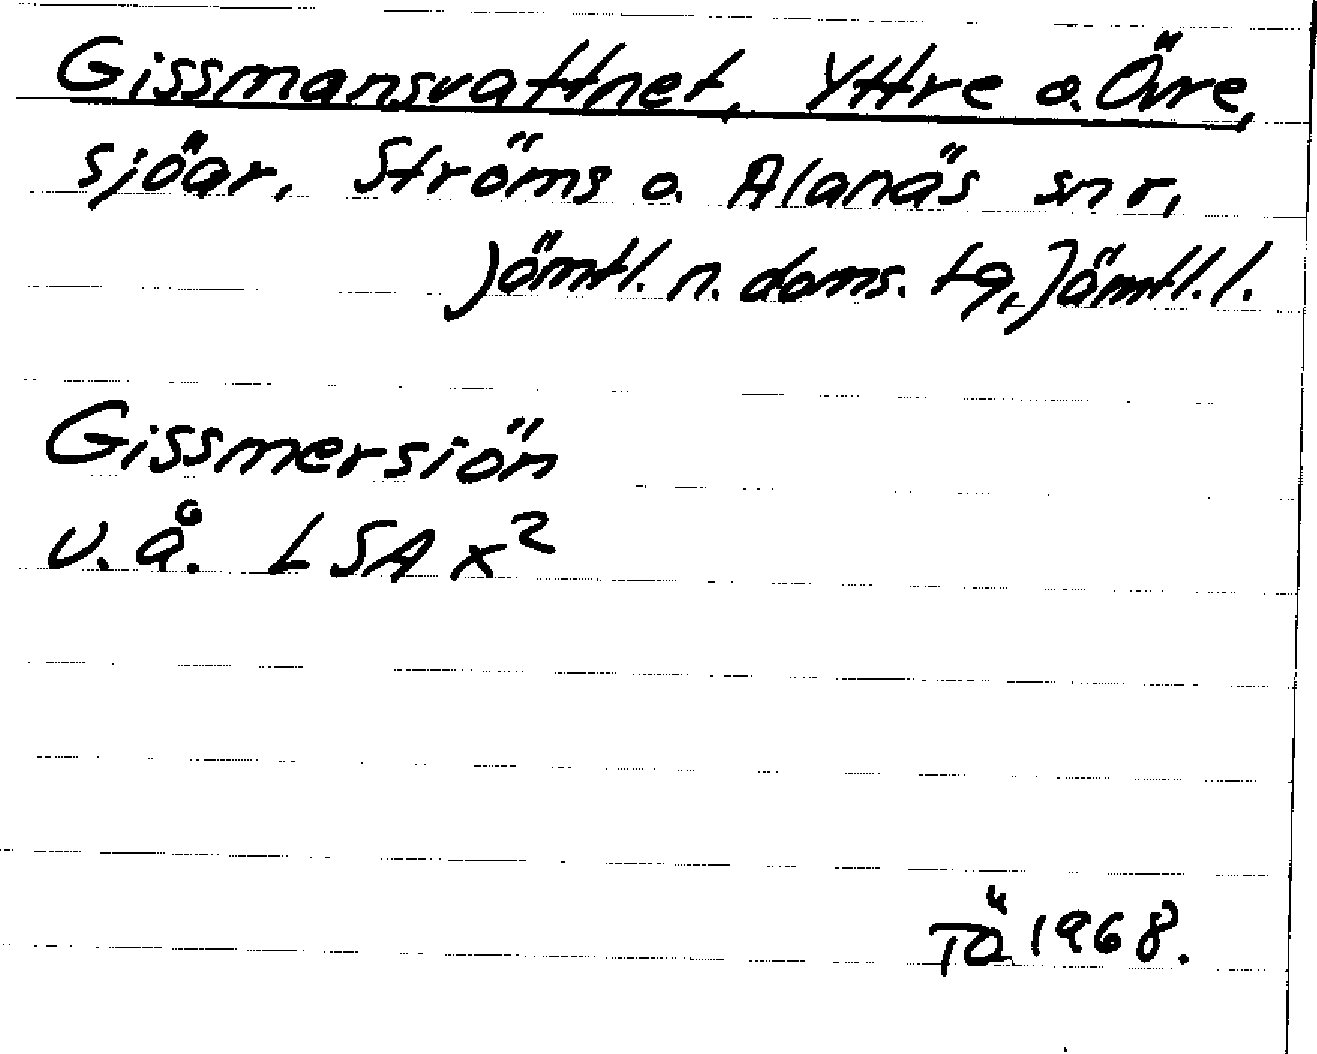 Gissmansvattnet, Yttre o. Övre,
sjöar, Ströms o. Alanäs snr,
Jämtl. n. doms. tg, Jämtl. l.
Gissmersiön
u. å. LSA x²
TÖ 1968.